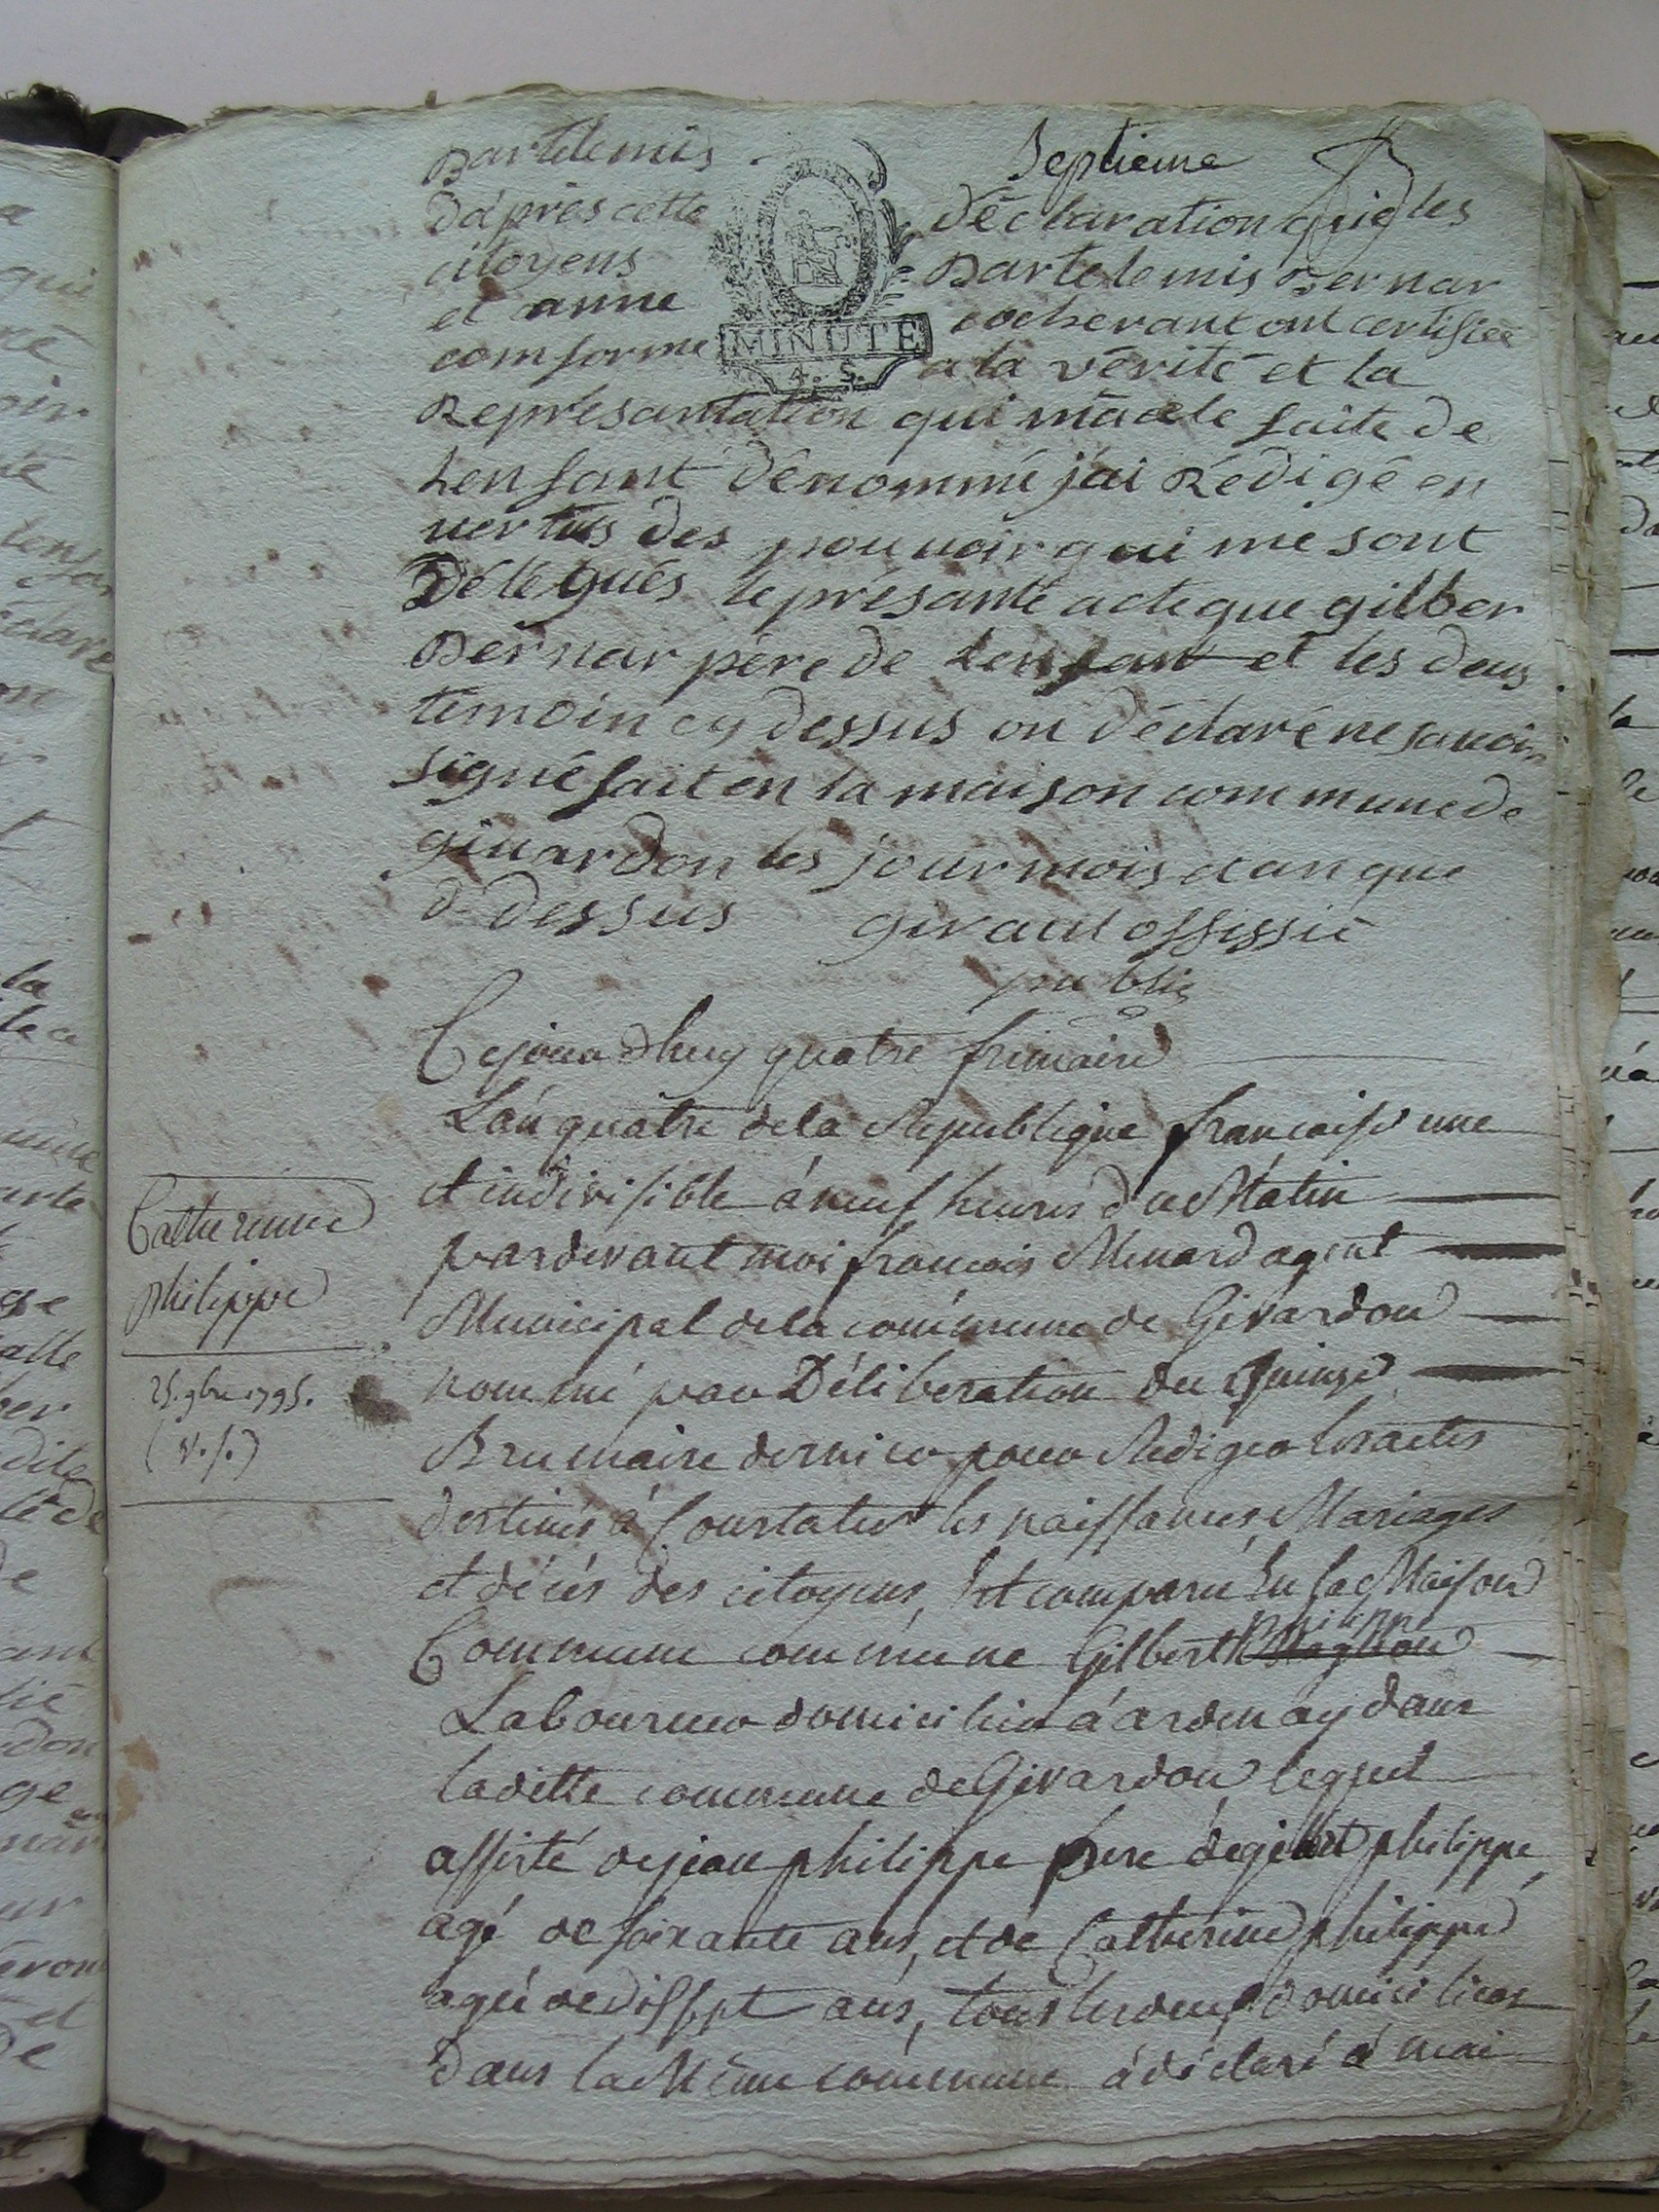 Bartelemis Septieme
d'áprès cette déclaration que les
citoyens Bartelemis Bernar
et anne cocherant ont certifiée
comforme a la vérité et la
MINUTE
4. S.
Represantation qui ma ete faite de
Lenfant dénommé j'ai Rédigé en
vertus des pouvoir qui me sont
Délégués le présante acte que gilber
Bernar père de Lenfan et les deus
temoin cy dessus on déclaré ne savoir
signé fait en la maison commune de
givardon les jour mois et an que
d- dessus giraut offissié
publis
Cejourdhuy quatre frimaire
L'an quatre de la Republique francaise une
et indivisible á neuf heures du Matin
pardevant moi francois Menard agent
Municipal de la commune de Givardon
nommé par Délibération du Quinze
Brumaire dernier pour Rediger les actes
destinés à Constater les naissances, Mariages
et décés des citoyens, Est comparu En la Maison
Commune commune Gilbert Philippe
Laboureur domicilié á ardenay dans
laditte commune de Givardon lequel
assisté de jean philippe frere de gilbert philippe
agé de soixante ans, et de Catherine philippe
agée de dissept ans, tous les deux domiciliés
dans la Même commune á déclaré á moi
Catherine
philippe
25. 9bre 1795.
(v. s.)